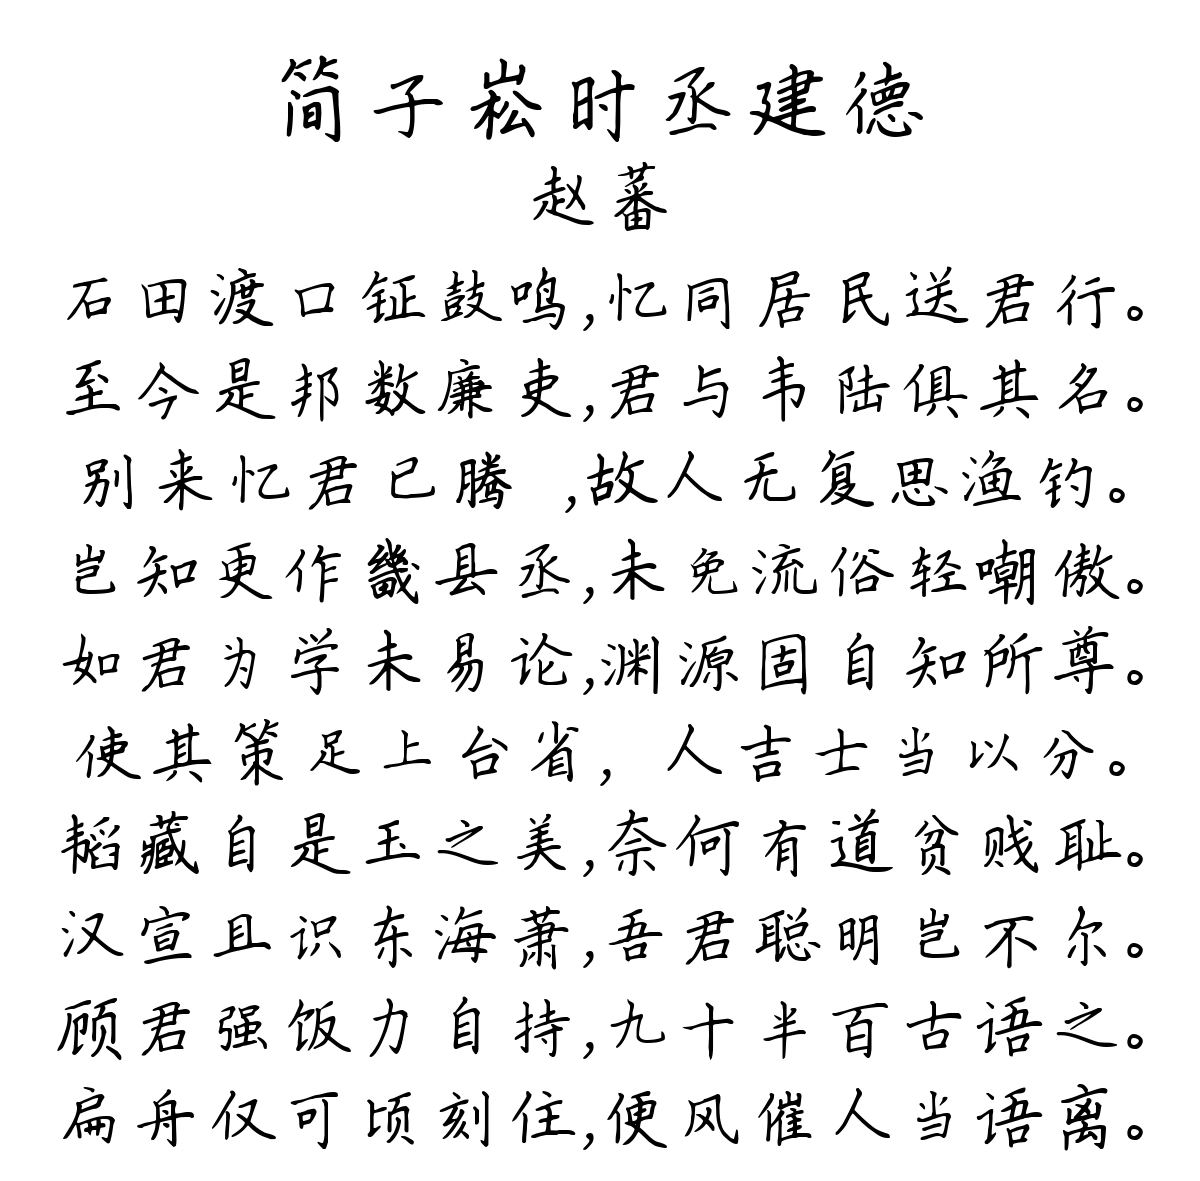 简子崧时丞建德
赵蕃
石田渡口钲鼓鸣,忆同居民送君行。
至今是邦数廉吏,君与韦陆俱其名。
别来忆君已腾 ,故人无复思渔钓。
岂知更作畿县丞,未免流俗轻嘲傲。
如君为学未易论,渊源固自知所尊。
使其策足上台省, 人吉士当以分。
韬藏自是玉之美,奈何有道贫贱耻。
汉宣且识东海萧,吾君聪明岂不尔。
顾君强饭力自持,九十半百古语之。
扁舟仅可顷刻住,便风催人当语离。